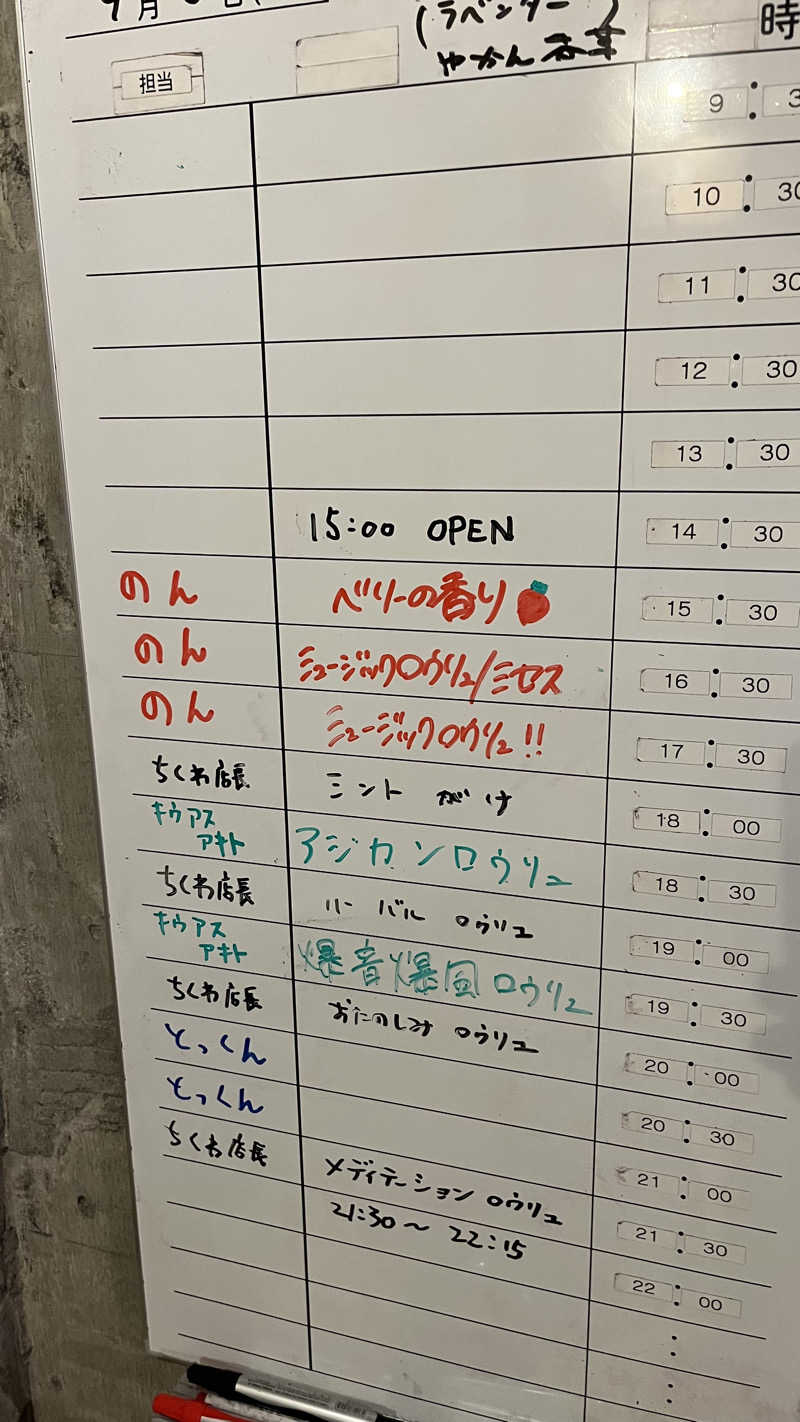 9月 日(
(ラベンダー)
やかん 香草
時
担当
9:3
10:30
11:30
12:30
13:30
15:00 OPEN 14:30
のん ベリーの香り 15:30
のん ミュージックロウリュ/ミセス 16:30
のん ミュージックロウリュ!! 17:30
ちくわ店長 ミント がけ 18:00
キウアス
アキト アジカンロウリュ 18:30
ちくわ店長 ハーバル ロウリュ 19:00
キウアス
アキト 爆音爆風ロウリュ 19:30
ちくわ店長 おたのしみ ロウリュ 20:00
とっくん 20:30
とっくん 21:00
ちくわ店長 メディテーション ロウリュ 21:30
21:30〜 22:15 22:00
:
: